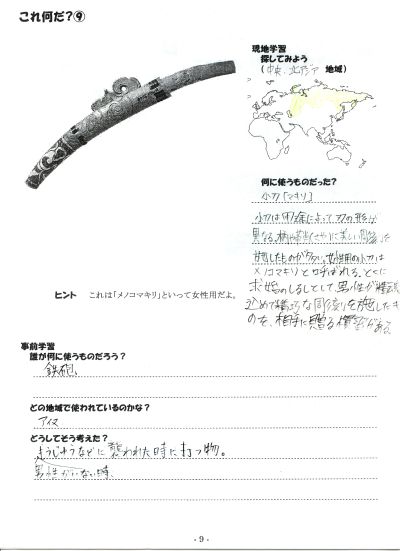 これ何だ?⑨
現地学習
探してみよう
(中央、北アジア 地域)
何に使うものだった?
小刀「マキリ」
小刀は用途によって刃の形が
異なる。柄や鞘(さや)に美しい彫刻を
施したものが多い。女性用の小刀は
メノコマキリと呼ばれる。とくに
求婚のしるしとして男性が精魂
込めて精巧な彫刻を施したも
のを、相手に贈る習慣がある
ヒント これは「メノコマキリ」といって女性用だよ。
事前学習
誰が何に使うものだろう?
鉄砲、
どの地域で使われているのかな?
アイヌ
どうしてそう考えた?
もうじゅうなどに襲われた時に打つ物。
男性がいない時、
- 9 -